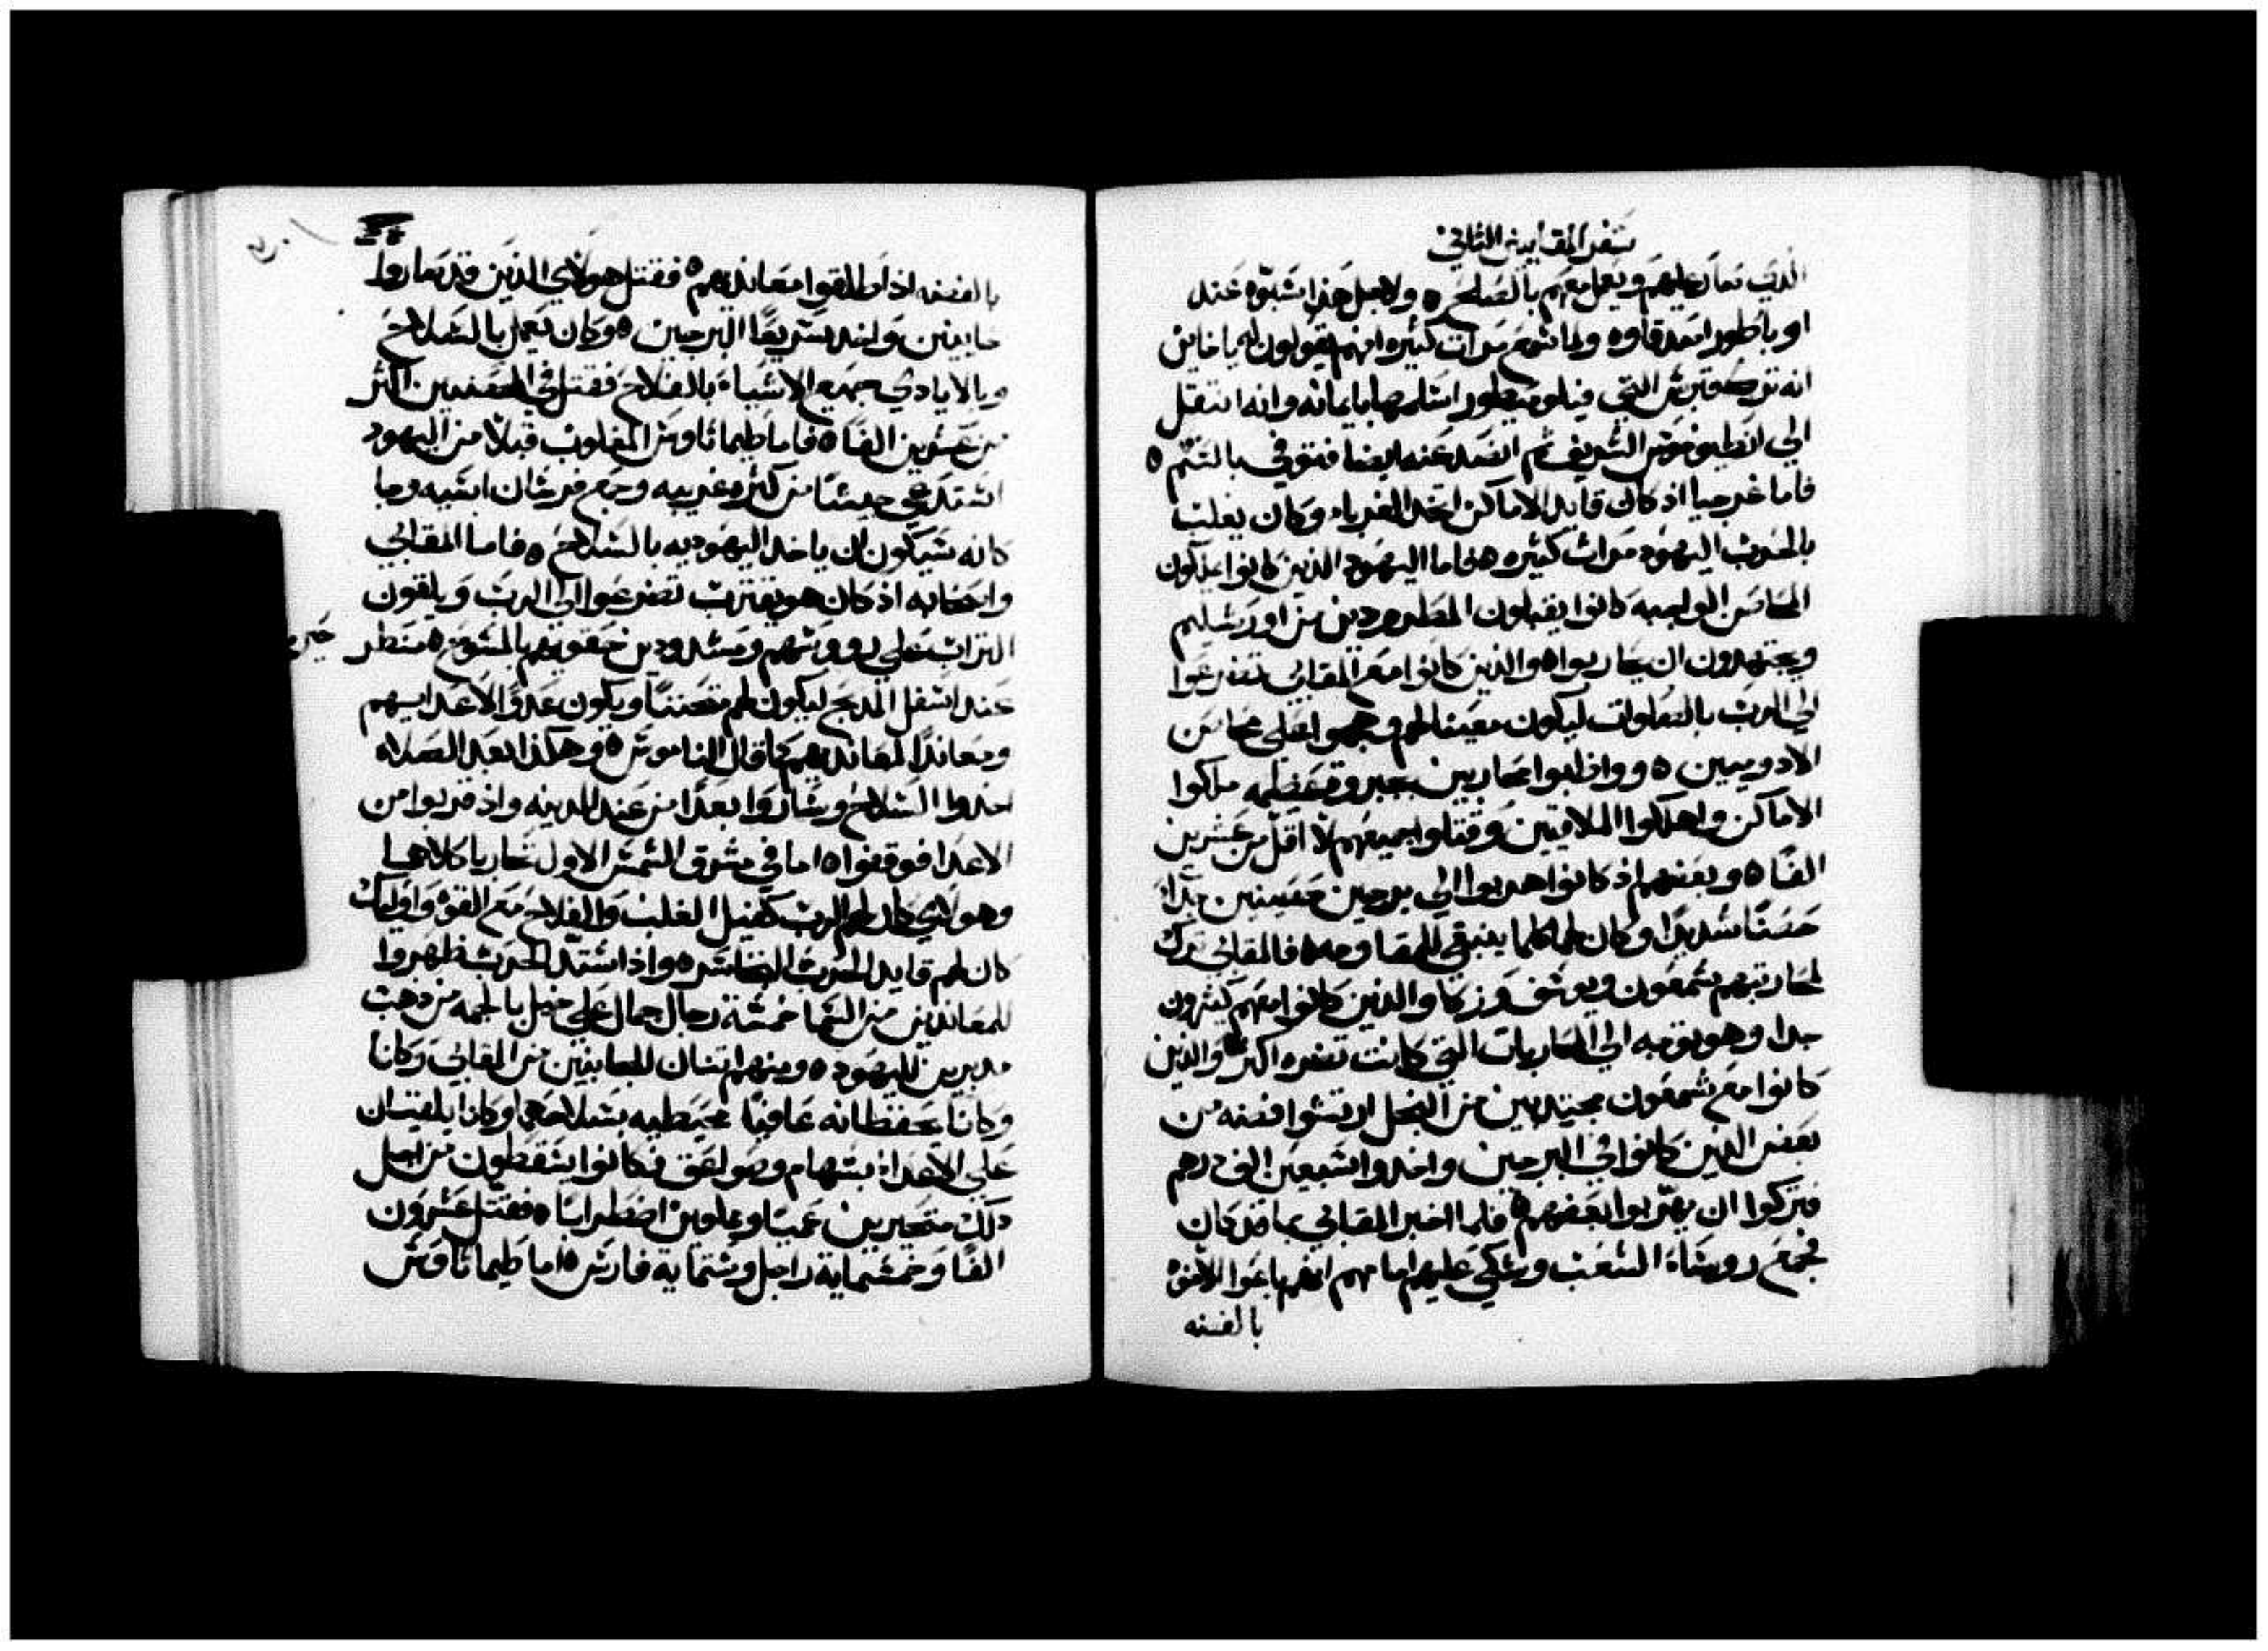 سفر المقابيين الثاني
الذي تعاطي عليهم ويعمل معهم بالصلح ٥ ولاجل هذا اشتكوه عند
اوباطور اصدقاوه ولما سمع مرات كثيره انهم يقولون له يا خاين
انه ترك قبرس التي فيلوميطور استامنها بايمانه وانه انتقل
الي انطيوخوس الشريف ثم انفصل عنه ايضا فتوفي بالسّم ٥
فاما غرجيا اذ كان قايد الاماكن اتخذ الغرباء وكان يغلب
بالحرب اليهود مرات كثيره ٥ فاما اليهود الذين كانوا يملكون
المحارس الواجبه كانوا يقبلون المطرودين من اورشليم
ويجتهدون ان يحاربوا ٥ والذين كانوا مع المقابي تضرعوا
الي الرب بالصلوات ليكون معينا لهم وهجموا علي محارس
الادوميين ٥ وواظبوا محاربين بجبروة عظيمه ملكوا
الاماكن واهلكوا الملاقيين وقتلوا جميعهم لا اقل من عشرين
الفًا ٥ وبعضهم اذ كانوا هربوا الي برجين حصينين جدًا
حصنًا شديدًا وكان لهما كلما ينبغي للمقاومه ٥ فالمقابي ترك
لمحاربتهم شمعون ويوسف وزكا والذين كانوا معهم كثيرون
جدا وهو توجه الي المحاربات التي كانت تضره اكثر ٥ والذين
كانوا مع شمعون مجتدبين من البخل ارتشوا فضه من
بعض الذين كانوا في البرجين واخدوا سبعين الف درهم
فتركوا ان يهربوا بعضهم ٥ فلما اخبر المقابي بما قد كان
جمع روساء الشعب وشكي عليهم امامهم انهم باعوا الاخوه
بالفضه
بالفضه اذ اطلقوا معانديهم ٥ فقتل هولاي الذين قد صاروا
خاينين واخد سريعًا البرجين ٥ وكان يعمل بالسلاح
وبالايادي جميع الاشياء بالفلاح فقتل في الحصنين اكثر
من عشرين الفًا ٥ فاما طيماثاوس المغلوب قبلًا من اليهود
استدعي جيشًا من كثره غريبه وجمع فرسان اسيه وجا
كانه سيكون ان ياخد اليهوديه بالسلاح ٥ فاما المقابي
واصحابه اذ كان هو يقترب تضرعوا الي الرب ويلقون
التراب علي رووسهم ومشدودين حقويهم بالمسوح ٥ منطر
عند اسفل المدبح ليكون لهم متحننًا ويكون عدوًا لاعدايهم
ومعاندًا لمعانديهم كما قال الناموس ٥ وهكذا بعد الصلاه
اخدوا السلاح وساروا بعدًا من عند المدينه واذ قربوا من
الاعدا فوقفوا ٥ اما في مشرق الشمس الاول تحاربا كلاهما
وهولاي كان لهم الرب كفيل الغلب والفلاح مع القوه واوليك
كان لهم قايد الحرب ٥ واذ اشتد الحرب ظهروا
للمعاندين من السما خمسة رجال جمال علي خيل بالجمه من دهب
مدبرين لليهود ٥ ومنهم اتنان للجانبين من المقابي وكانا
وكانا يحفظانه عافيًا محيطيه بسلاحهما وكانا يلقيان
علي الاعداء بسهام وصواعق فكانوا يسقطون من اجل
دلك متحيرين عميًا وملوين اضطرابًا ٥ فقتل عشرون
الفًا وخمسماية راجل وستماية فارس ٥ اما طيماثاوس